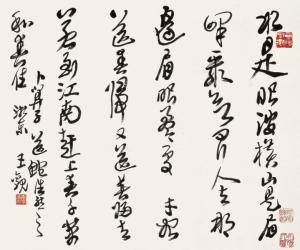 水是眼波橫山是眉
峰聚欲問行人去那
邊眉眼盈盈處才始
送春歸又送君歸去
若到江南趕上春千萬
和春住
卜算子 送鮑浩然之
浙東 王觀